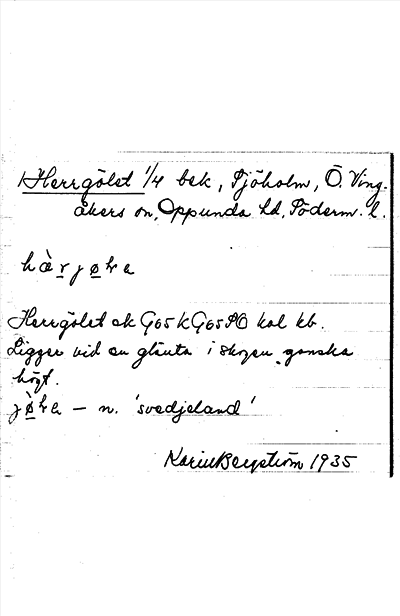 Herrgölet 1/4 bek, Sjöholm, Ö. Ving-
åkers sn, Oppunda hd, Söderm. l.
Herrgölet ek G65k G65SO kal kb.
Ligger vid en glänta i skogen ganska
högt.
— n. 'svedjeland'
Karin Bergström 1935